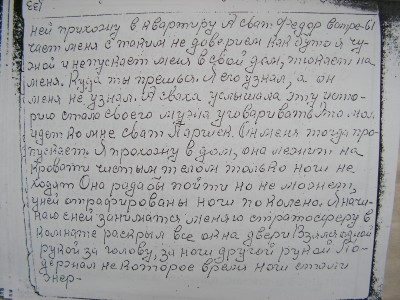 33
ней прихожу в квартиру А сват Федор встре-
чает меня с таким не доверием как будто я чу-
жой и не пускает меня в свой дом, толкает на
меня. Куда ты прешься. Я его узнал, а он
меня не узнал. А сваха услышала эту исто-
рию стала своего мужа уговаривать это. мол.
идет ко мне сват Паршек. Он меня тогда про-
пускает. Я прохожу в дом, она лежит на
кровати чистым телом только ноги не
ходят Она рада бы пойти но не может,
у ней отрафированы ноги по колено. Я начи-
наю с ней заниматся меняю стратосферу в
комнате раскрыл все окна двери Взялся одной
рукой за голову, за ноги другой рукой По-
держал некоторое время ноги стали
энер-